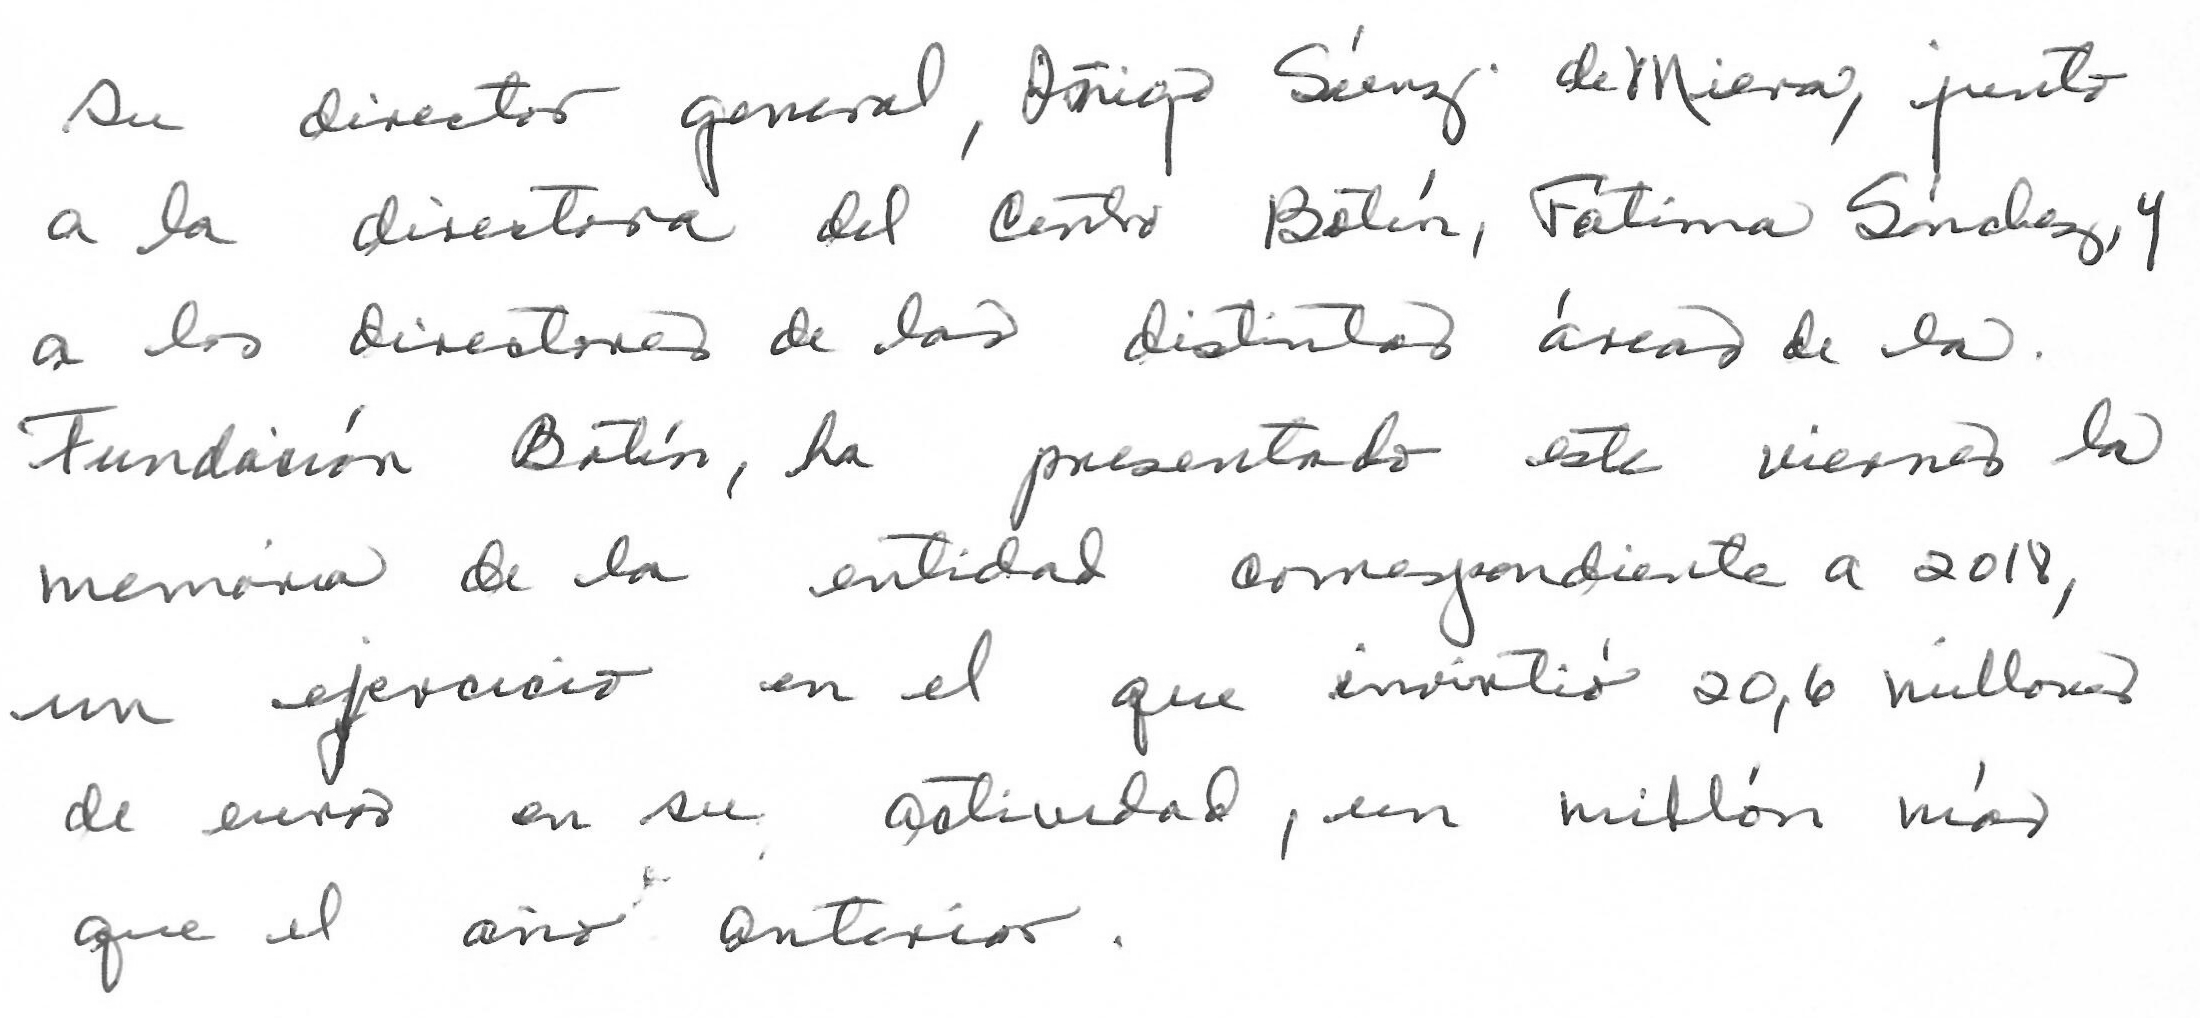 Su director general, Iñigo Sáenz de Miera, junto
a la directora del Centro Botín, Fátima Sánchez, y
a los directores de las distintas áreas de la
Fundación Botín, ha presentado este viernes la
memoria de la entidad correspondiente a 2018,
un ejercicio en el que invirtió 20,6 millones
de euros en su actividad, un millón más
que el año anterior.